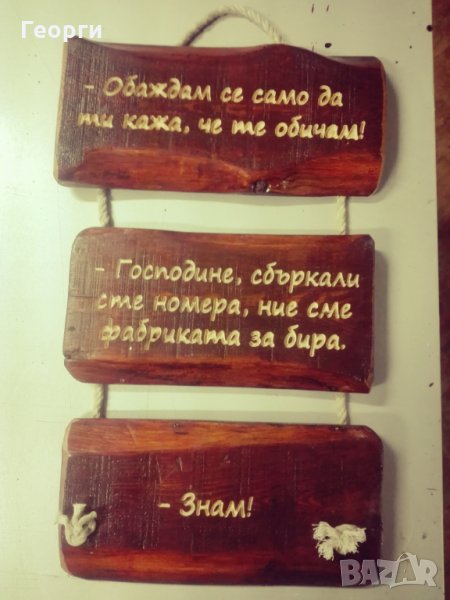 Георги
- Обаждам се само да
ти кажа, че те обичам!
- Господине, сбъркали
сте номера, ние сме
фабриката за бира.
- Знам!
BAZAR